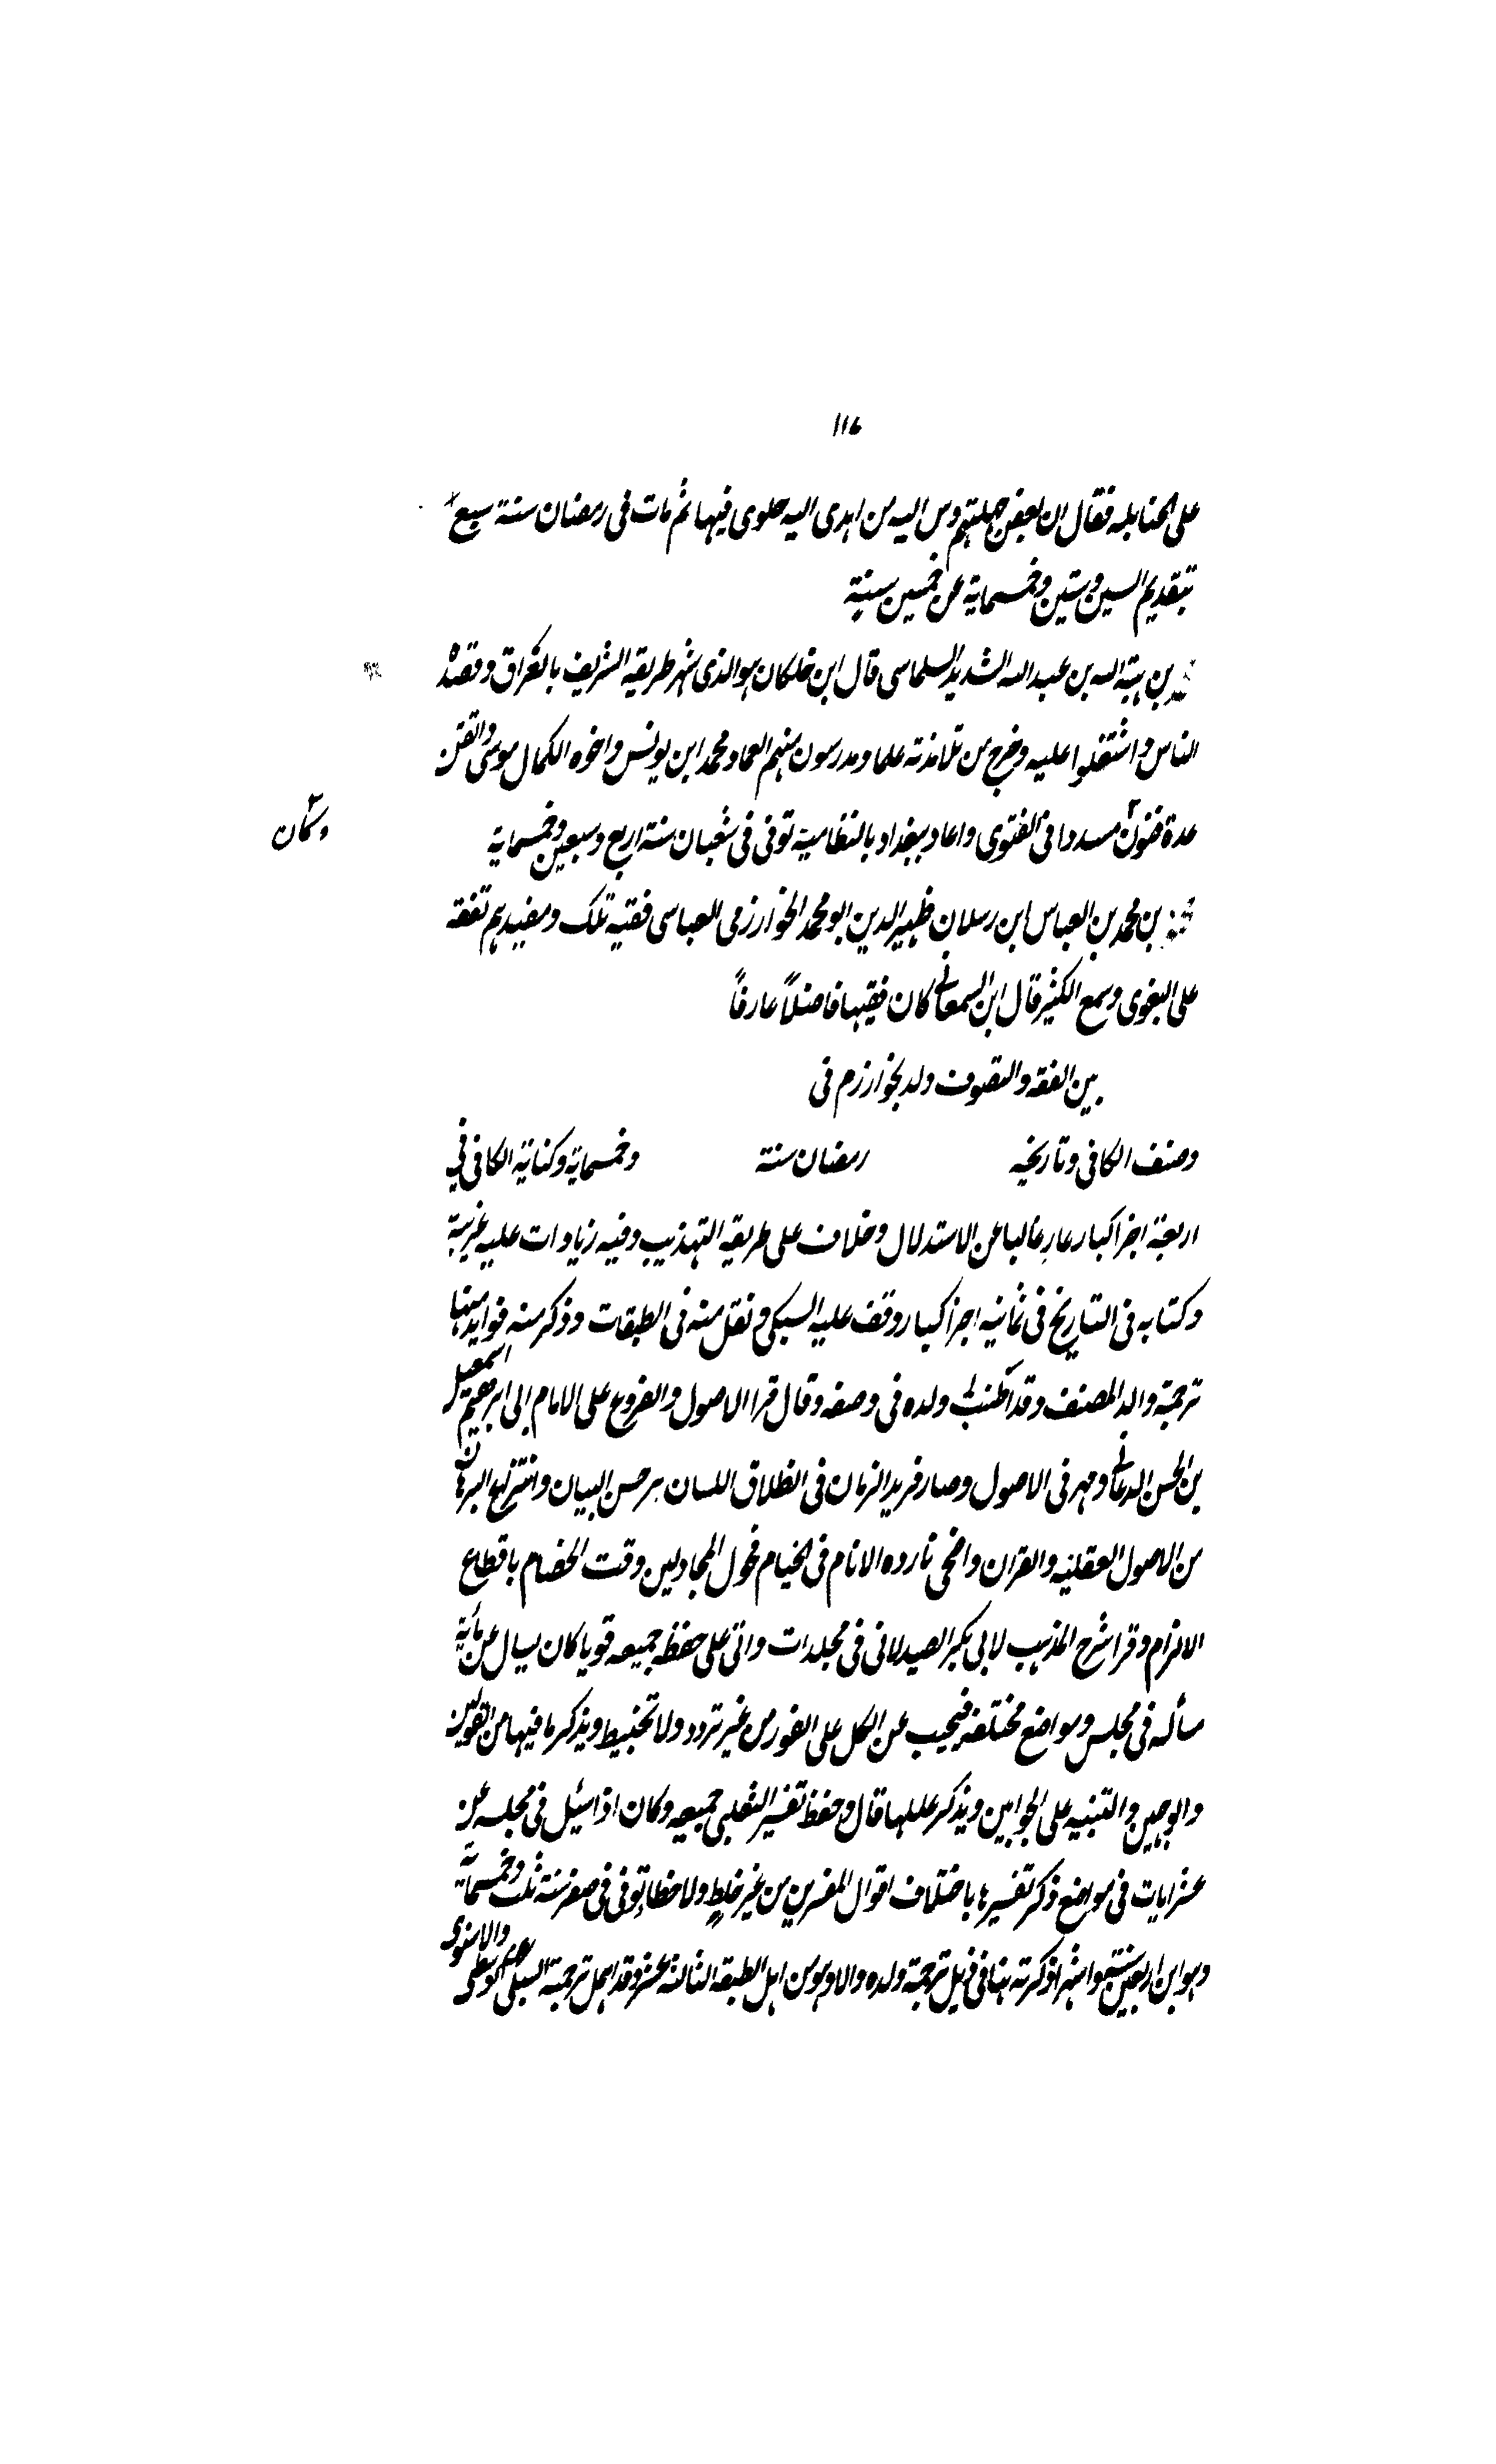 ١١٦
على الحنابله فقال ان بعض جهلتهم دس اليه من اهدى اليه حلوى فيها ثم مات فى رمضان سنة سبع
بتقديم السين وستين وخمسماية عن خمسين سنة
بن هبة الله بن عبد الله السديد السلماسى قال ابن خلكان هو الذى شهر طريقه الشريف بالعراق وقصده
الناس واشتغلوا عليه وخرج من تلامذته علما ومدرسون منهم العماد محمد ابن يونس واخوه الكمال موسى واتقن
عدة فنون مسددا فى الفتوى واعاد ببغداد بالنظامية توفى فى شعبان سنة اربع وسبعين وخمسماية
وكان
بن محمد بن العباس ابن رسلان ظهير الدين ابو محمد الخوارزمى العباسى فقيه تلك ومفيدهم تفقه
على البغوى وسمع الكثير قال ابن السمعانى كان فقيها فاضلاً عارفاً
بين الفقه والتصوف ولد بخوارزم فى
وصنف الكافى وتاريخه رمضان سنة وخمسماية وكتابة الكافى فى
اربعة اجزا كبار عار غالبا عن الاستدلال وخلاف على طريقه التهذيب وفيه زيادات عليه غريبة
وكتابه فى التاريخ فى ثمانيه اجزا كبار وقف عليه السبكى ونقل منه فى الطبقات وذكر منه فوايد منها
ترجمة والد المصنف وقد اطنب ولده فى وصفه وقال قرا الاصول والفروع على الامام ابى ابرهيم اسمعيل
بن الحسن ومهر فى الاصول وصار فريد الزمان فى انطلاق اللسان حسن البيان وانتزاع البرهان
من الاصول العقليه والقران فحول المجادلين وقت الخصام باقطاع
الالزام وقرا شرح المذهب لابى بكر الصيدلانى فى مجلدات واتى على حفظه جميعه قويا كان يسال عن ماية
مسأله فى مجلس ومواضع مختلفه فيجيب عن الكل على الفور من غير تردد ولا تخبيط ويذكر ما فيها من القولين
والوجهين والتنبيه على الجوابين ويذكر عللها قال وحفظ تفسير الثعلبى جميعه وكان اذا سئل فى مجلسه عن
عشر ايات فى مواضع ذكر تفسيرها باختلاف اقوال المفسرين من غير خلط ولا خطا توفى فى صفر سنة ثلث وخمسماية
وهو ابن اربعين سنة واشهر ذكرته هنا فى ذيل ترجمة ولده والا وهو من اهل الطبقه الثالثة عشر وقد اهمل ترجمة السبكى والاسنوى